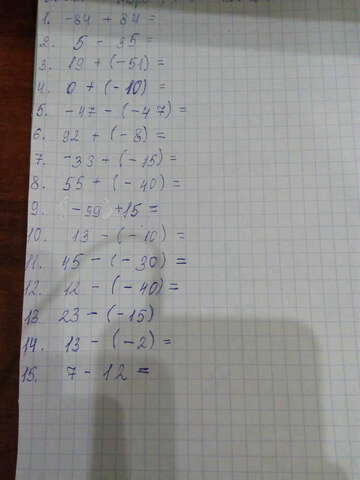 1. -84 + 84 =
2. 5 - 35 =
3. 19 + (-51) =
4. 0 + (-10) =
5. -47 - (-47) =
6. 92 + (-8) =
7. -33 - (-15) =
8. 55 + (-40) =
9. (-99) + 15 =
10. 13 - (-10) =
11. 45 - (-30) =
12. 12 - (-40) =
13. 23 - (-15)
14. 13 - (-2) =
15. 7 - 12 =